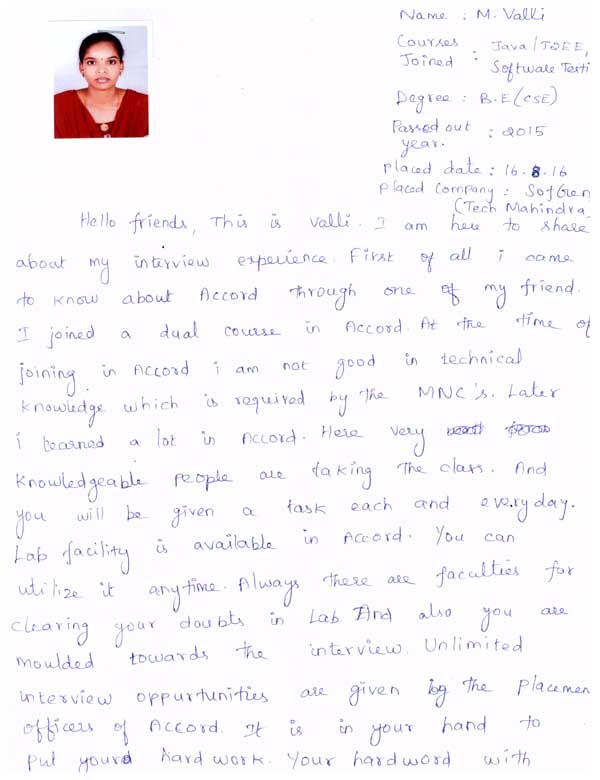 Name : M. Valli
Courses Joined : Java/J2EE, Software Testi
Degree : B.E (CSE)
Passed out year. : 2015
Placed date : 16.8.16
Placed Company : SofGen
(Tech Mahindra
Hello friends, This is Valli. I am here to share
about my interview experience. First of all i came
to know about Accord through one of my friend.
I joined a dual course in Accord. At the time of
joining in Accord i am not good in technical
knowledge which is required by the MNC's. Later
i learned a lot in Accord. Here very
knowledgeable people are taking the class. And
you will be given a task each and everyday.
Lab facility is available in Accord. You can
utilize it anytime. Always there are faculties for
clearing your doubts in Lab. And also you are
moulded towards the interview. Unlimited
interview oppurtunities are given by the Placemen
officers of Accord. It is in your hand to
put your hard work. Your hardword with